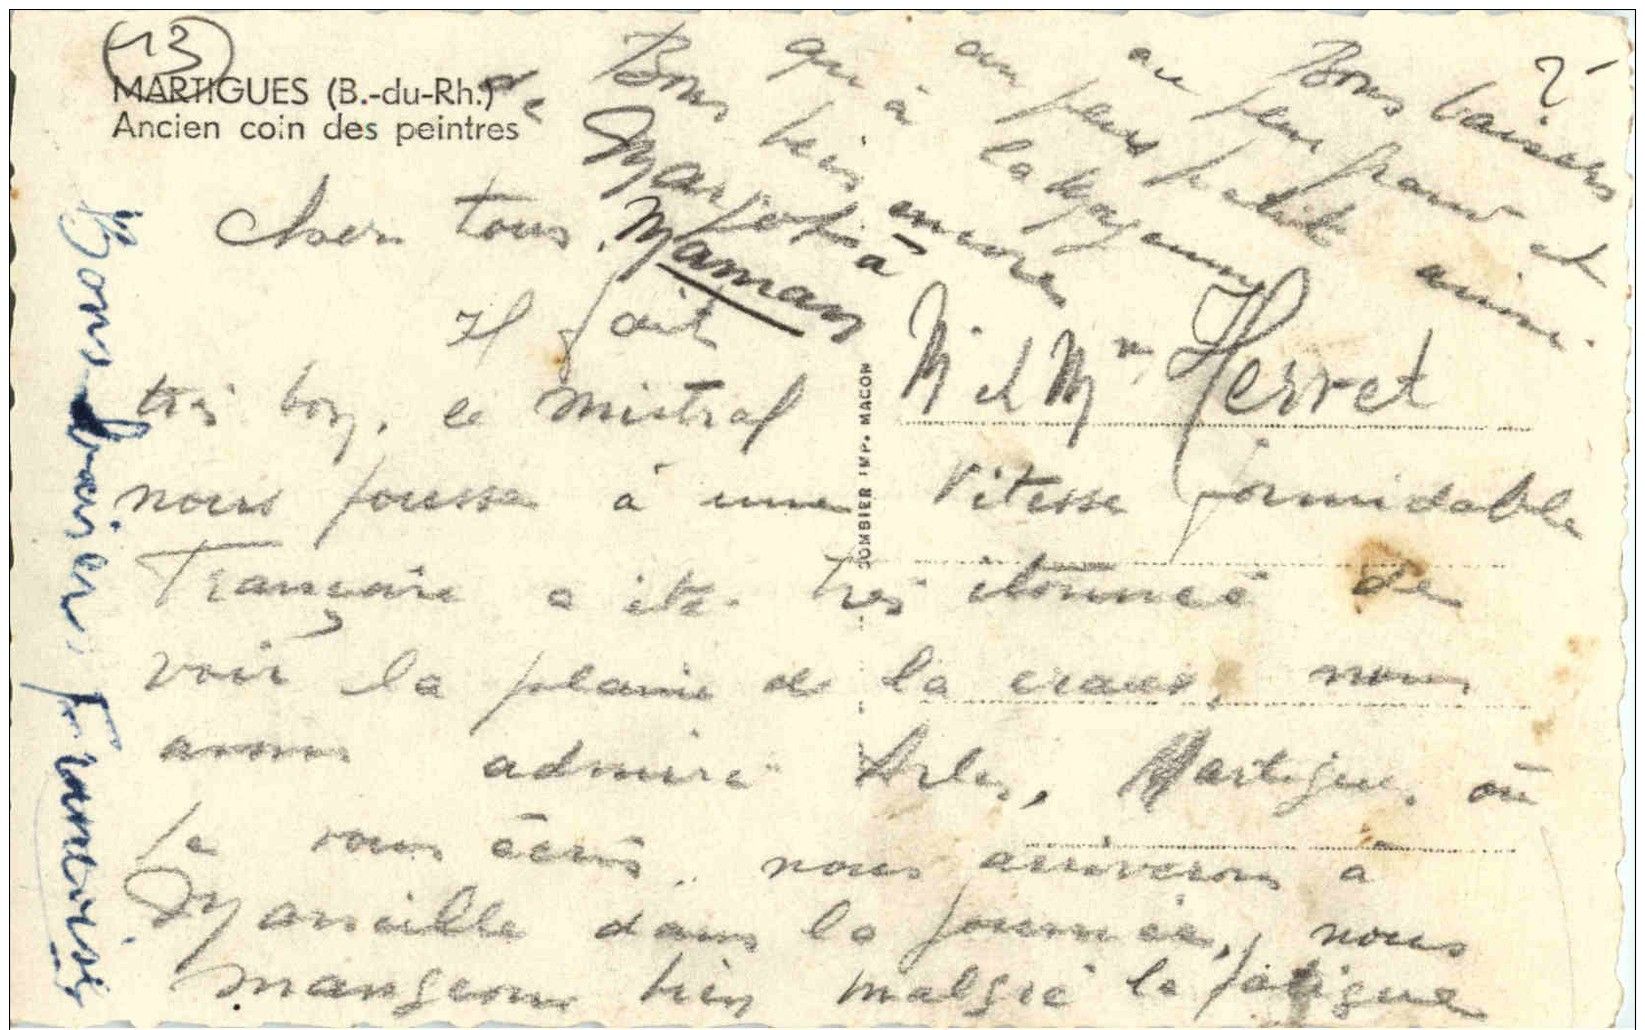 13
MARTIGUES (B.-du-Rh.)
Ancien coin des peintres
Chers tous.
Il fait
très bon, le mistral
nous pousse à une vitesse formidable
Françoise a été très étonnée de
voir la plaine de la craux, nous
avons admiré Arles, Martigues où
je vous écris, nous arriverons à
Marseille dans la journée, nous
mangeons bien malgré la fatigue
M et Mme Herret
Bons baisers
au petit
qui à
de Bons
Marjol à
Maman
Bons baisers Françoise
2
COMBIER IMP. MACON